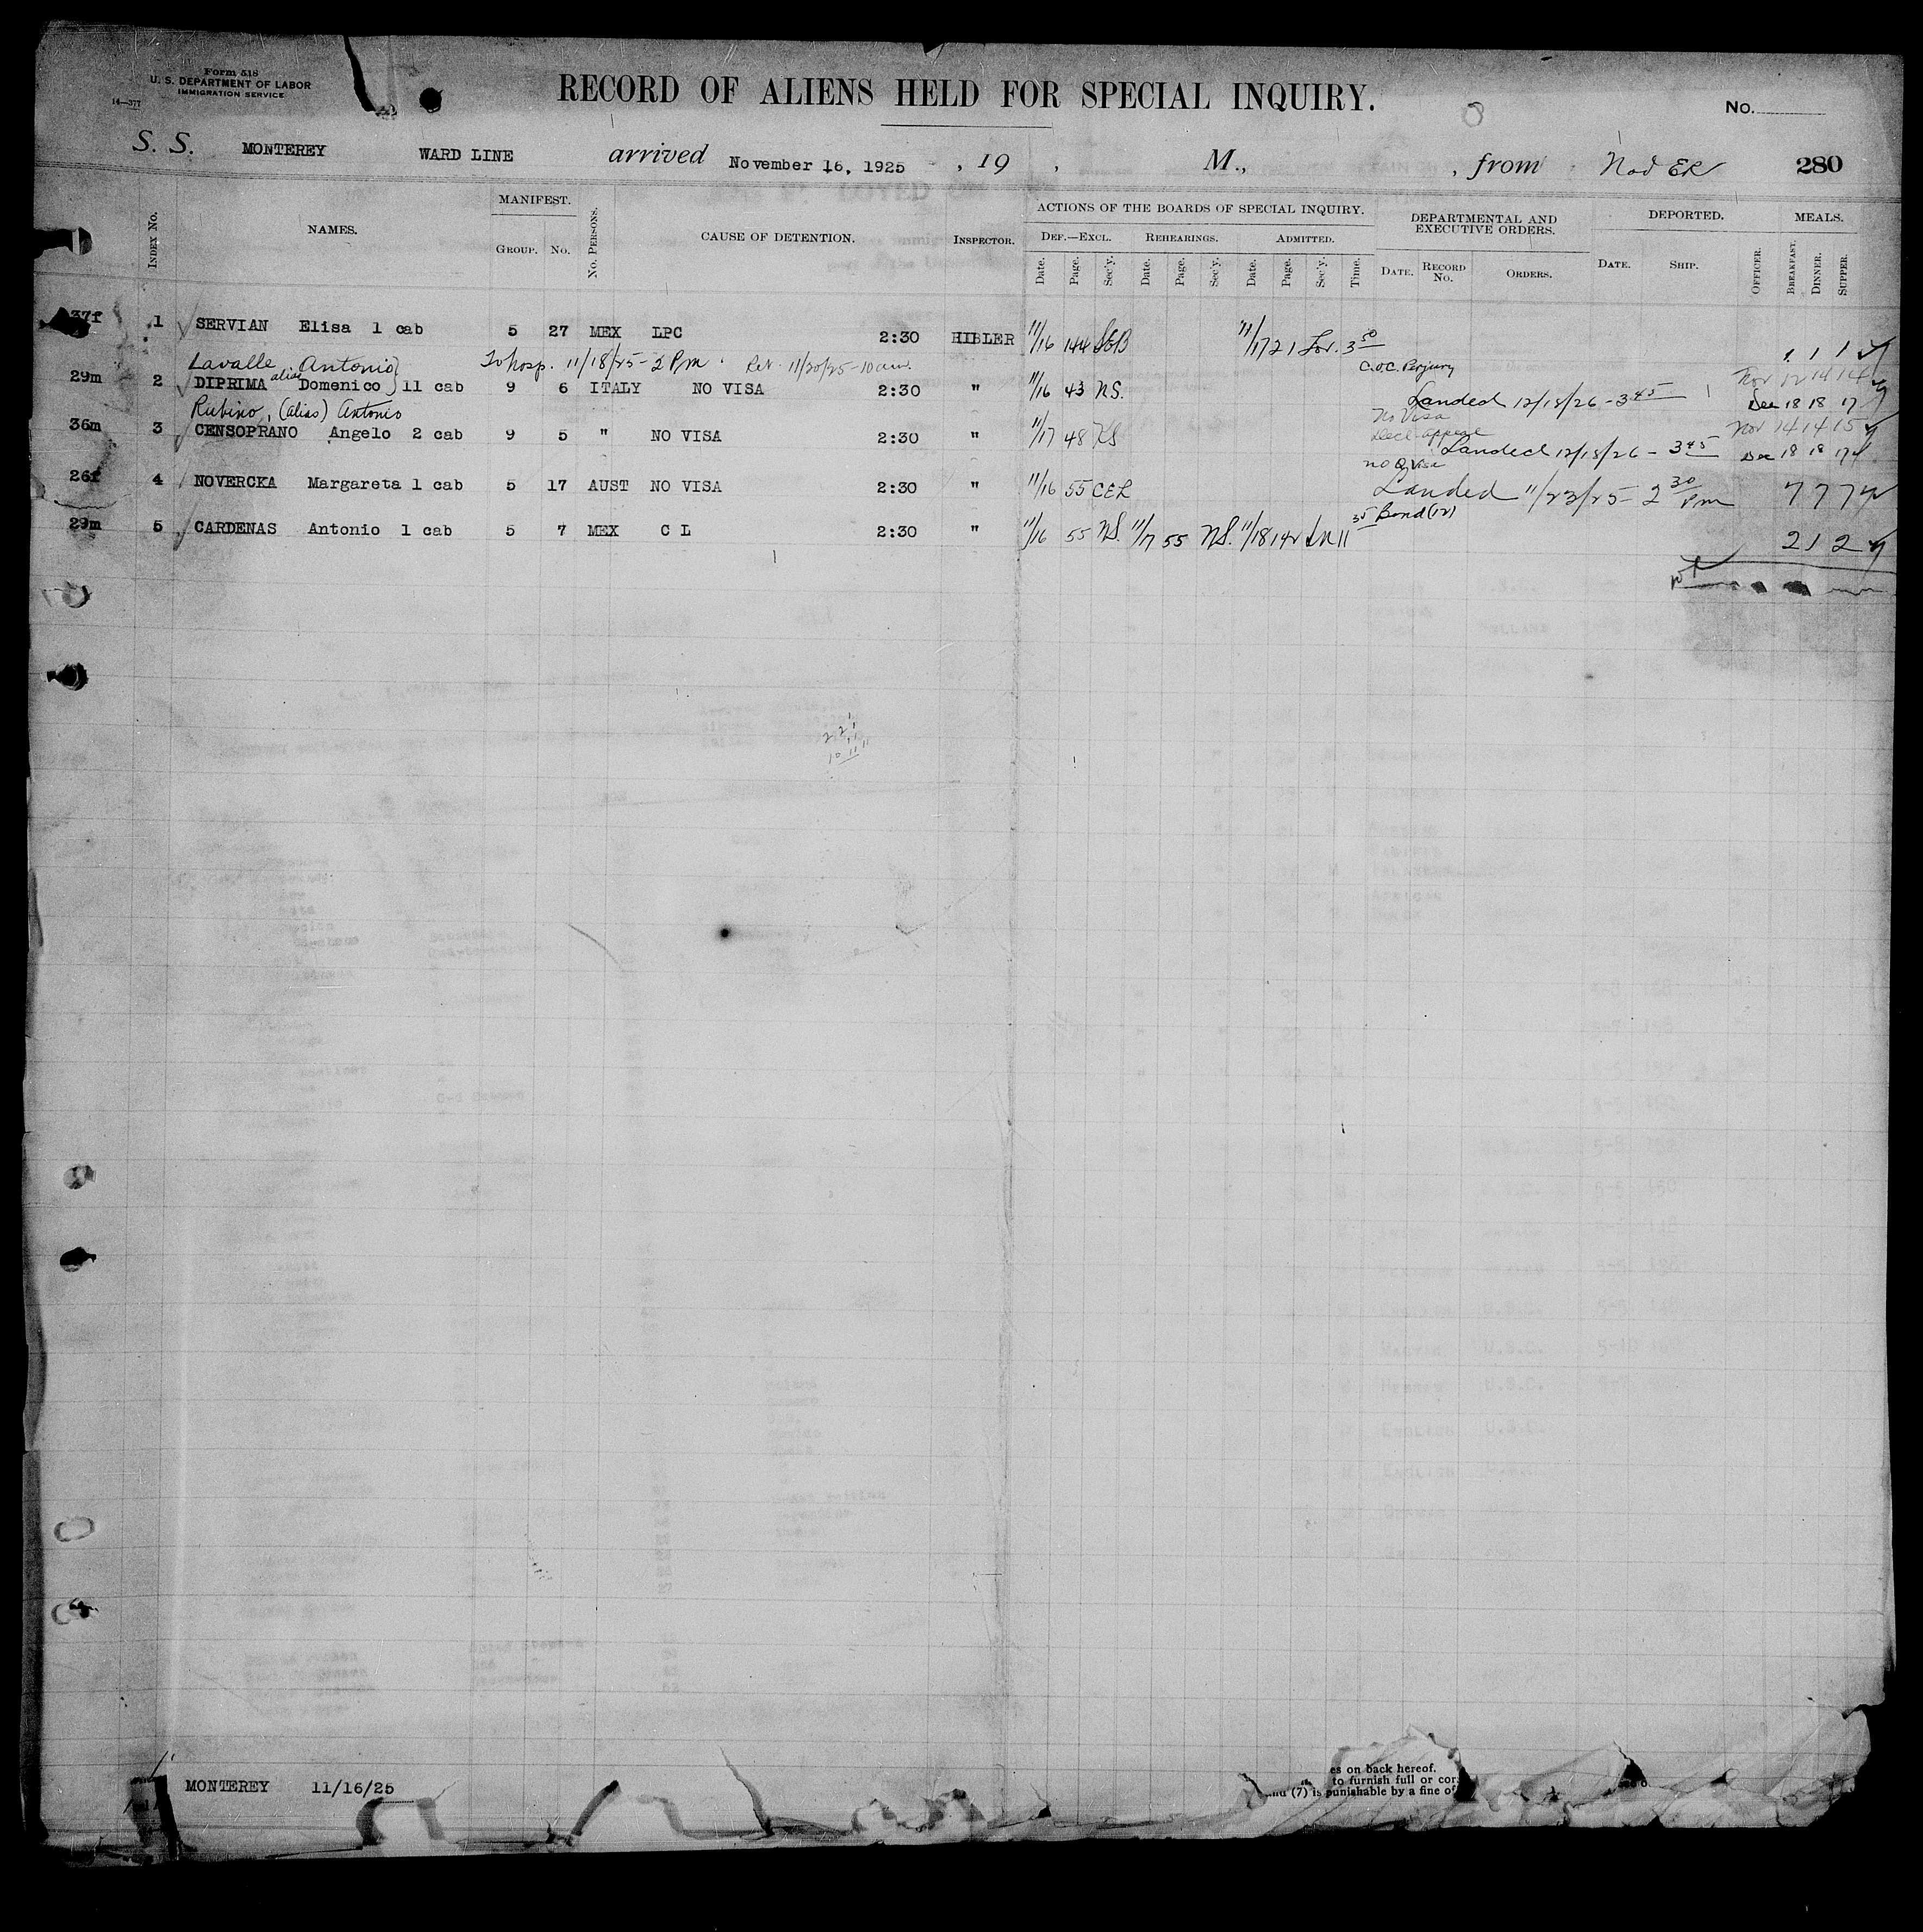 Form 518
U. S. DEPARTMENT OF LABOR
IMMIGRATION SERVICE
14—377
RECORD OF ALIENS HELD FOR SPECIAL INQUIRY.
No.
S. S. MONTEREY WARD LINE arrived November 16, 1925 , 19 , M., , from 280
Index No. NAMES. MANIFEST. Group. No. No. Persons. CAUSE OF DETENTION. Inspector. ACTIONS OF THE BOARDS OF SPECIAL INQUIRY. Def.—Excl. Date. Page. Sec'y. Rehearings. Date. Page. Sec'y. Admitted. Date. Page. Sec'y. Time. DEPARTMENTAL AND EXECUTIVE ORDERS. Date. Record No. Orders. DEPORTED. Date. Ship. MEALS. Officer. Breakfast. Dinner. Supper.
37f 1 SERVIAN Elisa 1 cab 5 27 MEX LPC 2:30 HIBLER 11/16 144 11/17 21 3 50 1 1 1
Lavalle Antonio To hosp. 11/18/25 - 2 Pm Ret. 11/30/25 - 10 am. Perjury Nov 12 14 14
29m 2 DIPRIMA alias Domenico 11 cab 9 6 ITALY NO VISA 2:30 " 11/16 43 N.S. Landed 12/18/26 - 3 45 Dec 18 18 17
Rubino, (alias) Antonio No Visa
36m 3 CENSOPRANO Angelo 2 cab 9 5 " NO VISA 2:30 " 11/17 48 appeal Nov 14 14 15
Landed 12/18/26 - 3 45 Dec 18 18 17
26f 4 NOVERCKA Margareta 1 cab 5 17 AUST NO VISA 2:30 " 11/16 55 no Q visa Landed 11/23/25 - 2 30 Pm 7 7 7
29m 5 CARDENAS Antonio 1 cab 5 7 MEX C L 2:30 " 11/16 55 N.S. 11/17 55 N.S. 11/18 11 35 Bond 2 1 2
MONTEREY 11/16/25
es on back hereof.
to furnish full or cor
(7) is punishable by a fine of